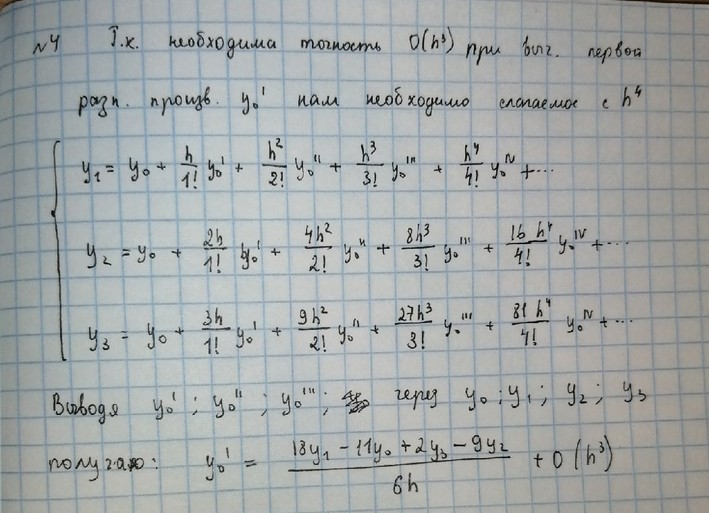 №4 Т.к. необходима точность O(h³) при выч. первой
разн. произв. y₀' нам необходимо слагаемое с h⁴
y₁ = y₀ + h/1! y₀' + h²/2! y₀'' + h³/3! y₀''' + h⁴/4! y₀ᴵⱽ + ...
y₂ = y₀ + 2h/1! y₀' + 4h²/2! y₀'' + 8h³/3! y₀''' + 16h⁴/4! y₀ᴵⱽ + ...
y₃ = y₀ + 3h/1! y₀' + 9h²/2! y₀'' + 27h³/3! y₀''' + 81h⁴/4! y₀ᴵⱽ + ...
Выводя y₀'; y₀''; y₀'''; через y₀; y₁; y₂; y₃
получаю: y₀' = (18y₁ - 11y₀ + 2y₃ - 9y₂)/6h + O(h³)